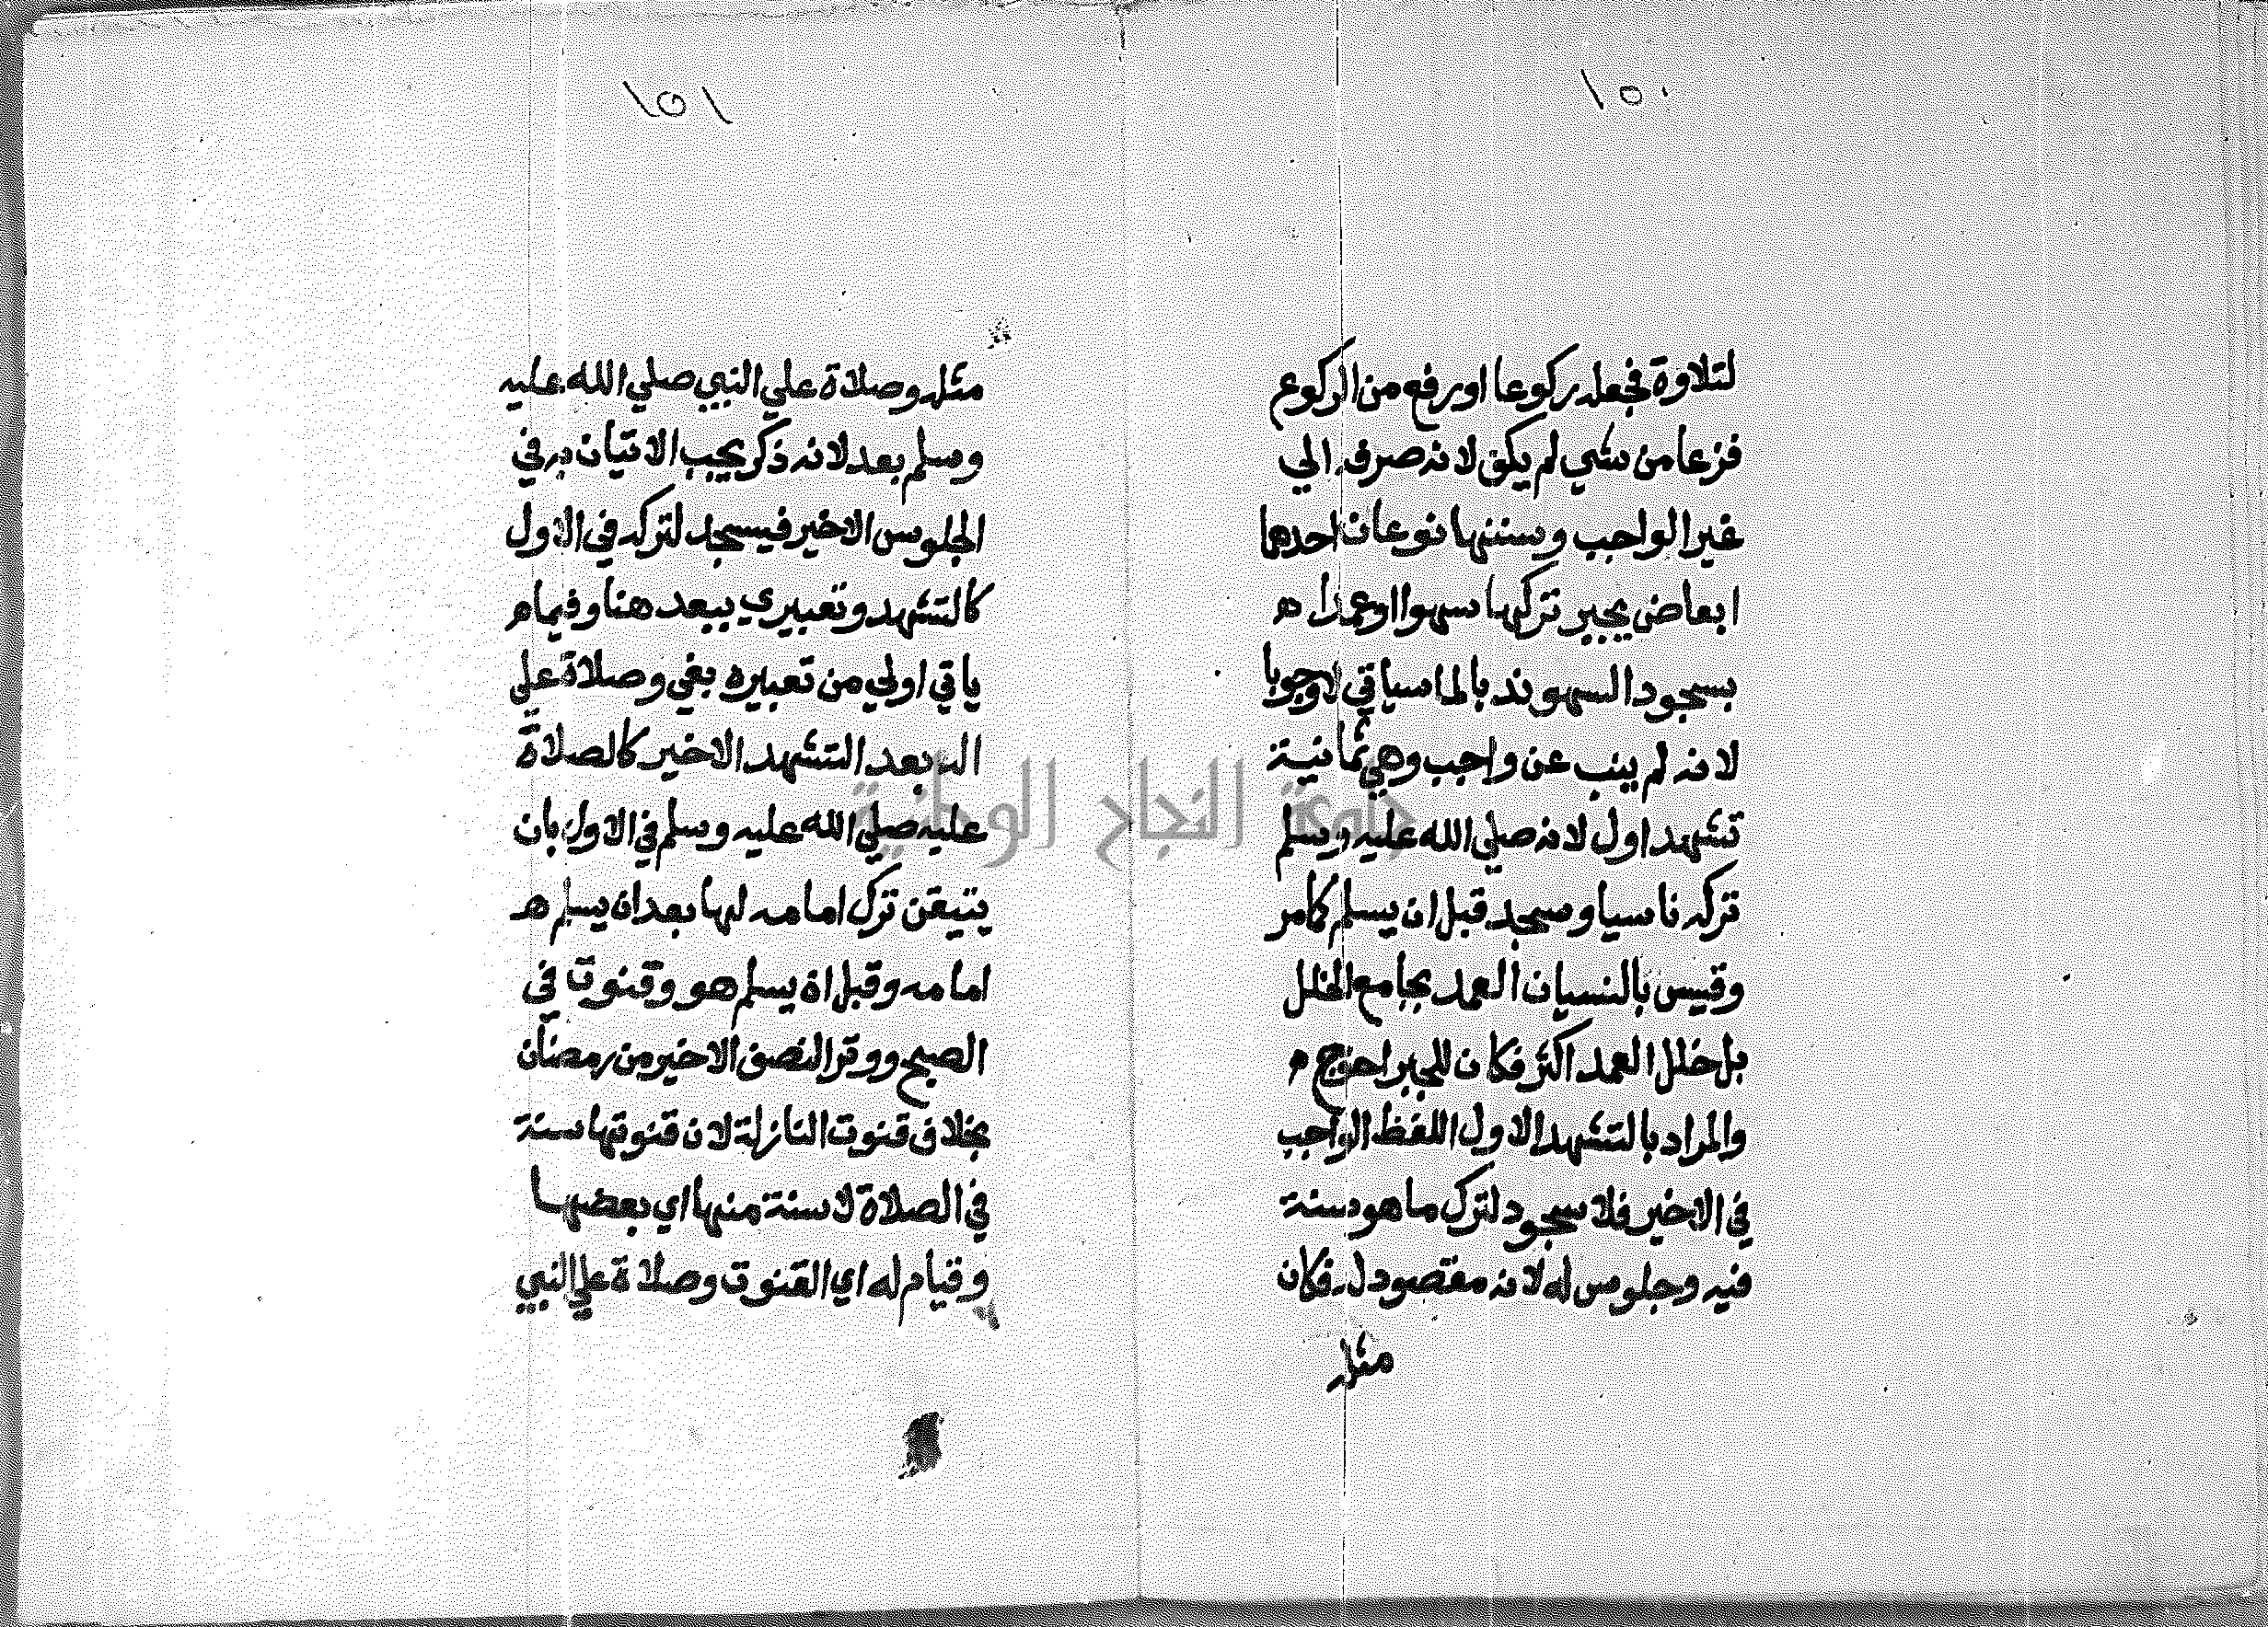 ١٥٠
لتلاوة فجعله ركوعا او رفع من الركوع
فزعا من شي لم يكف لانه صرفه الي
غير الواجب وسننها نوعان احدهما
ابعاض يجبر تركها سهوا اوعمدا م
بسجود السهو ندبا لما سياتي لا وجوبا
لانه لم ينب عن واجب وهي ثمانية
تشهد اول لانه صلي الله عليه وسلم
تركه ناسيا وسجد قبل ان يسلم كامر
وقيس بالنسيان العمد بجامع الخلل
بل خلل العمد اكثر فكان للجبر احوج م
والمراد بالتشهد الاول اللفظ الواجب
في الاخير فلا سجود لترك ما هو سنة
فيه وجلوس له لانه مقصود له فكان
مثله
١٥١
مثله وصلاة علي النبي صلي الله عليه
وسلم بعد لانه ذكر يجب الاتيان به في
الجلوس الاخير فيسجد لتركه في الاول
كالتشهد وتعبيري ببعد هنا وفيما م
ياتي اولي من تعبيره بفي وصلاة علي
اله بعد التشهد الاخير كالصلاة
عليه صلي الله عليه وسلم في الاول بان
يتيقن ترك امامه لها بعد ان يسلم هـ
امامه وقبل ان يسلم هو وقنوت في
الصبح ووتر النصف الاخير من رمضان
بخلاف قنوت النازلة لان قنوتها سنة
في الصلاة لا سنة منها اي بعضها
وقيام له اي القنوت وصلاة علي النبي
جامعة النجاح الوطنية